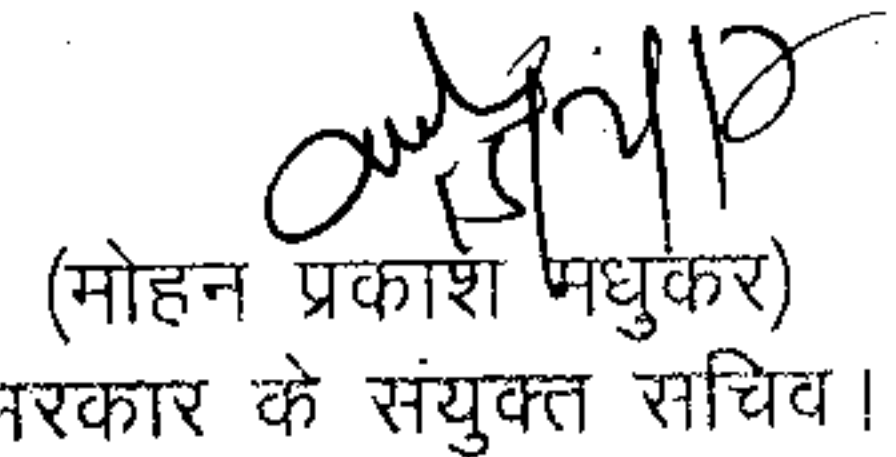 (मोहन प्रकाश मधुकर)
सरकार के संयुक्त सचिव।